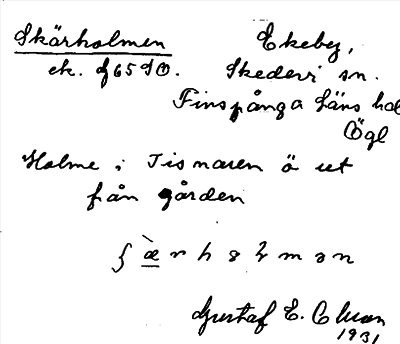 Skärholmen
ek. f 65 SO.
Ekeby,
Skedevi sn.
Finspånga läns hd
Ögl
Holme i Tisnaren ö ut
från gården
Gustaf E. Olson
1931